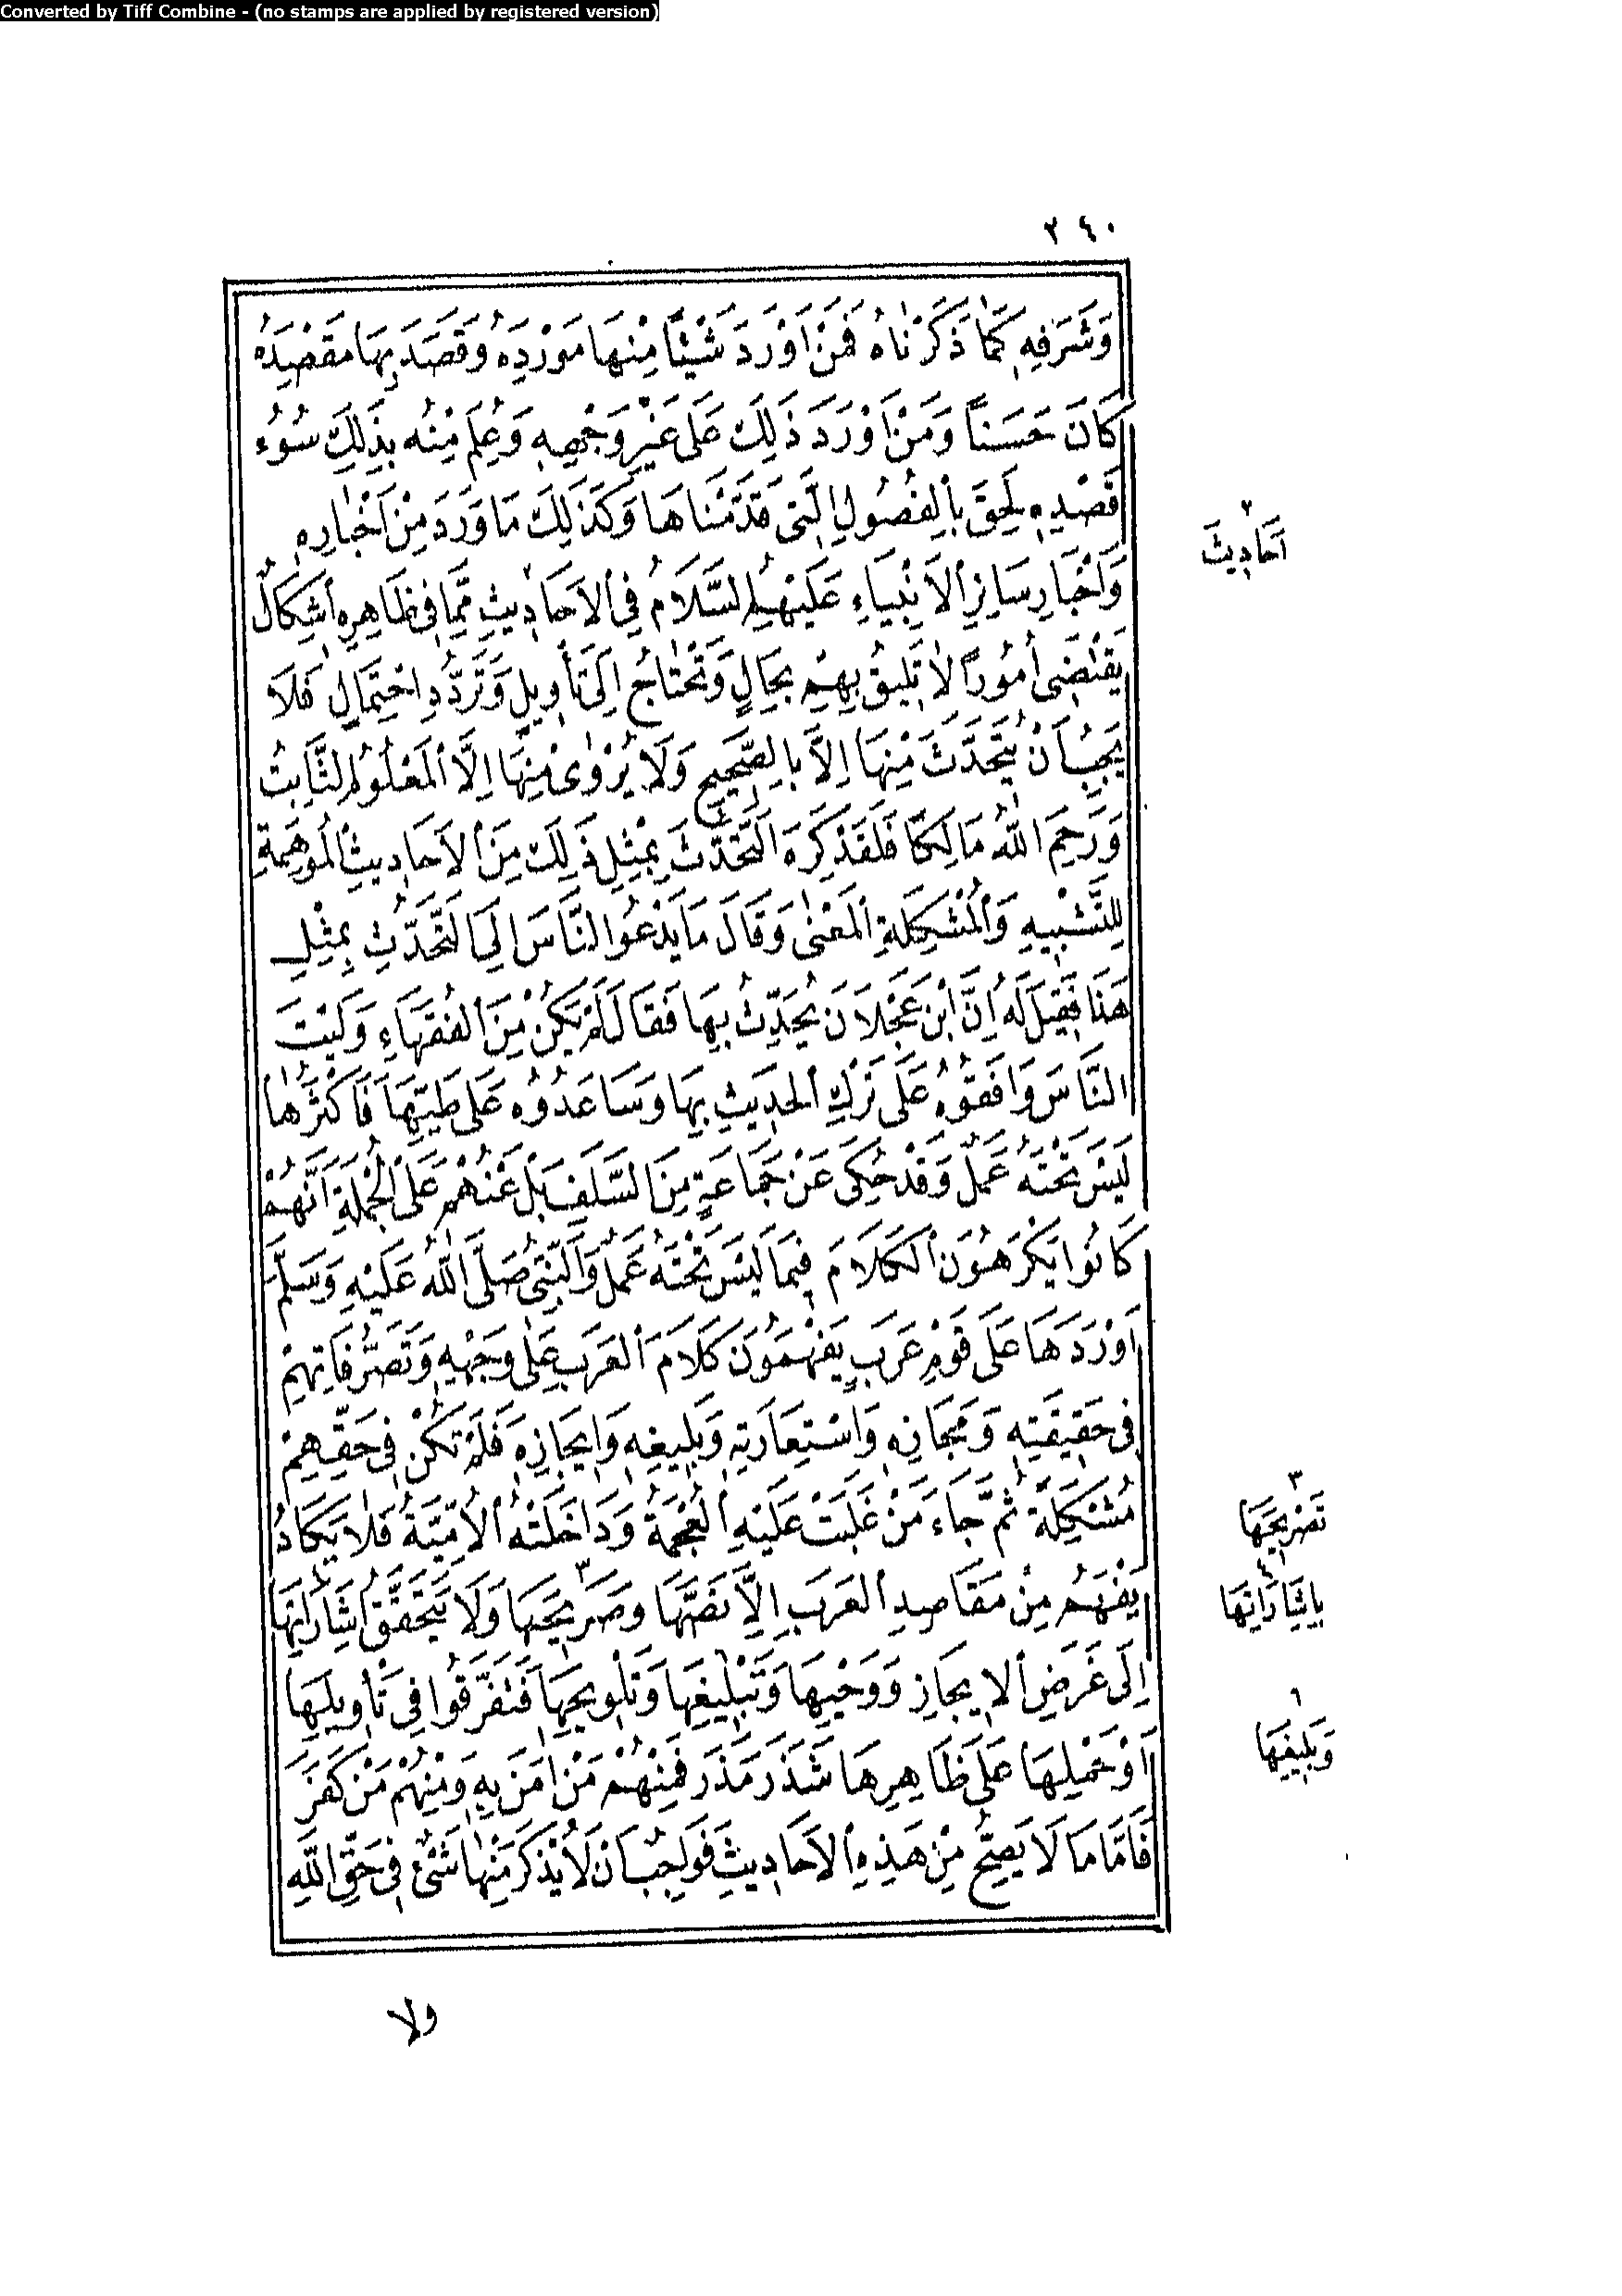 Converted by Tiff Combine - (no stamps are applied by registered version)
٢٤٠
وَشَرَفِهِ كَمَا ذَكَرْنَاهُ فَمَنْ اَوْرَدَ شَيْئًا مِنْهَا مَوْرِدَهُ وَقَصَدَ بِهَا مَقْصِدَهُ
كَانَ حَسَنًا وَمَنْ اَوْرَدَ ذَلِكَ عَلَى غَيْرِ وَجْهِهِ وَعُلِمَ مِنْهُ بِذَلِكَ سُوءُ
قَصْدِهِ لَحِقَ بِالْفُصُولِ الَّتِى قَدَّمْنَاهَا وَكَذَلِكَ مَا وَرَدَ مِنْ اَخْبَارِهِ
وَاَخْبَارِ سَائِرِ الْاَنْبِيَاءِ عَلَيْهِمُ السَّلَامُ فِى الْاَحَادِيثِ مِمَّا فِى ظَاهِرِهِ اِشْكَالٌ
يَقْتَضِى اُمُورًا لَا تَلِيقُ بِهِمْ بِحَالٍ وَتَحْتَاجُ اِلَى تَأْوِيلٍ وَتَرَدُّدِ احْتِمَالٍ فَلَا
يَجِبُ اَنْ يُتَحَدَّثَ مِنْهَا اِلَّا بِالصَّحِيحِ وَلَا يُرْوَى مِنْهَا اِلَّا الْمَعْلُومُ الثَّابِتُ
وَرَحِمَ اللّٰهُ مَالِكًا فَلَقَدْ كَرِهَ التَّحَدُّثَ بِمِثْلِ ذَلِكَ مِنَ الْاَحَادِيثِ الْمُوهِمَةِ
لِلتَّشْبِيهِ وَالْمُشْكِلَةِ الْمَعْنَى وَقَالَ مَا يَدْعُو النَّاسَ اِلَى التَّحَدُّثِ بِمِثْلِ
هَذَا فَقِيلَ لَهُ اِنَّ ابْنَ عَجْلَانَ يُحَدِّثُ بِهَا فَقَالَ لَمْ يَكُنْ مِنَ الْفُقَهَاءِ وَلَيْتَ
النَّاسَ وَافَقُوهُ عَلَى تَرْكِ الْحَدِيثِ بِهَا وَسَاعَدُوهُ عَلَى طَيِّهَا فَاَكْثَرُهَا
لَيْسَ تَحْتَهُ عَمَلٌ وَقَدْ حُكِىَ عَنْ جَمَاعَةٍ مِنَ السَّلَفِ بَلْ عَنْهُمْ عَلَى الْجُمْلَةِ اَنَّهُمْ
كَانُوا يَكْرَهُونَ الْكَلَامَ فِيمَا لَيْسَ تَحْتَهُ عَمَلٌ وَالنَّبِىُّ صَلَّى اللّٰهُ عَلَيْهِ وَسَلَّمَ
اَوْرَدَهَا عَلَى قَوْمٍ عَرَبٍ يَفْهَمُونَ كَلَامَ الْعَرَبِ عَلَى وَجْهِهِ وَتَصَرُّفَاتِهِمْ
فِى حَقِيقَتِهِ وَمَجَازِهِ وَاسْتِعَارَتِهِ وَبَلِيغِهِ وَاِيجَازِهِ فَلَمْ تَكُنْ فِى حَقِّهِمْ
مُشْكِلَةً ثُمَّ جَاءَ مَنْ غَلَبَتْ عَلَيْهِ الْعُجْمَةُ وَدَاخَلَتْهُ الْاُمِّيَّةُ فَلَا يَكَادُ
يَفْهَمُ مِنْ مَقَاصِدِ الْعَرَبِ اِلَّا نَصَّهَا وَصَرِيحَهَا وَلَا يَتَحَقَّقُ اِشَارَاتِهَا
اِلَى غَرَضِ الْاِيجَازِ وَوَحْيِهَا وَتَبْلِيغِهَا وَتَلْوِيحِهَا فَتَفَرَّقُوا فِى تَأْوِيلِهَا
اَوْ حَمْلِهَا عَلَى ظَاهِرِهَا شَذَرَ مَذَرَ فَمِنْهُمْ مَنْ اٰمَنَ بِهِ وَمِنْهُمْ مَنْ كَفَرَ
فَاَمَّا مَا لَا يَصِحُّ مِنْ هَذِهِ الْاَحَادِيثِ فَوَاجِبٌ اَنْ لَا يُذْكَرَ مِنْهَا شَىْءٌ فِى حَقِّ اللّٰهِ
٢
اَحَادِيثَ
٣
تَصْرِيحَهَا
٤
بِاِشَارَاتِهَا
٦
وَبَلِيغِهَا
ولا